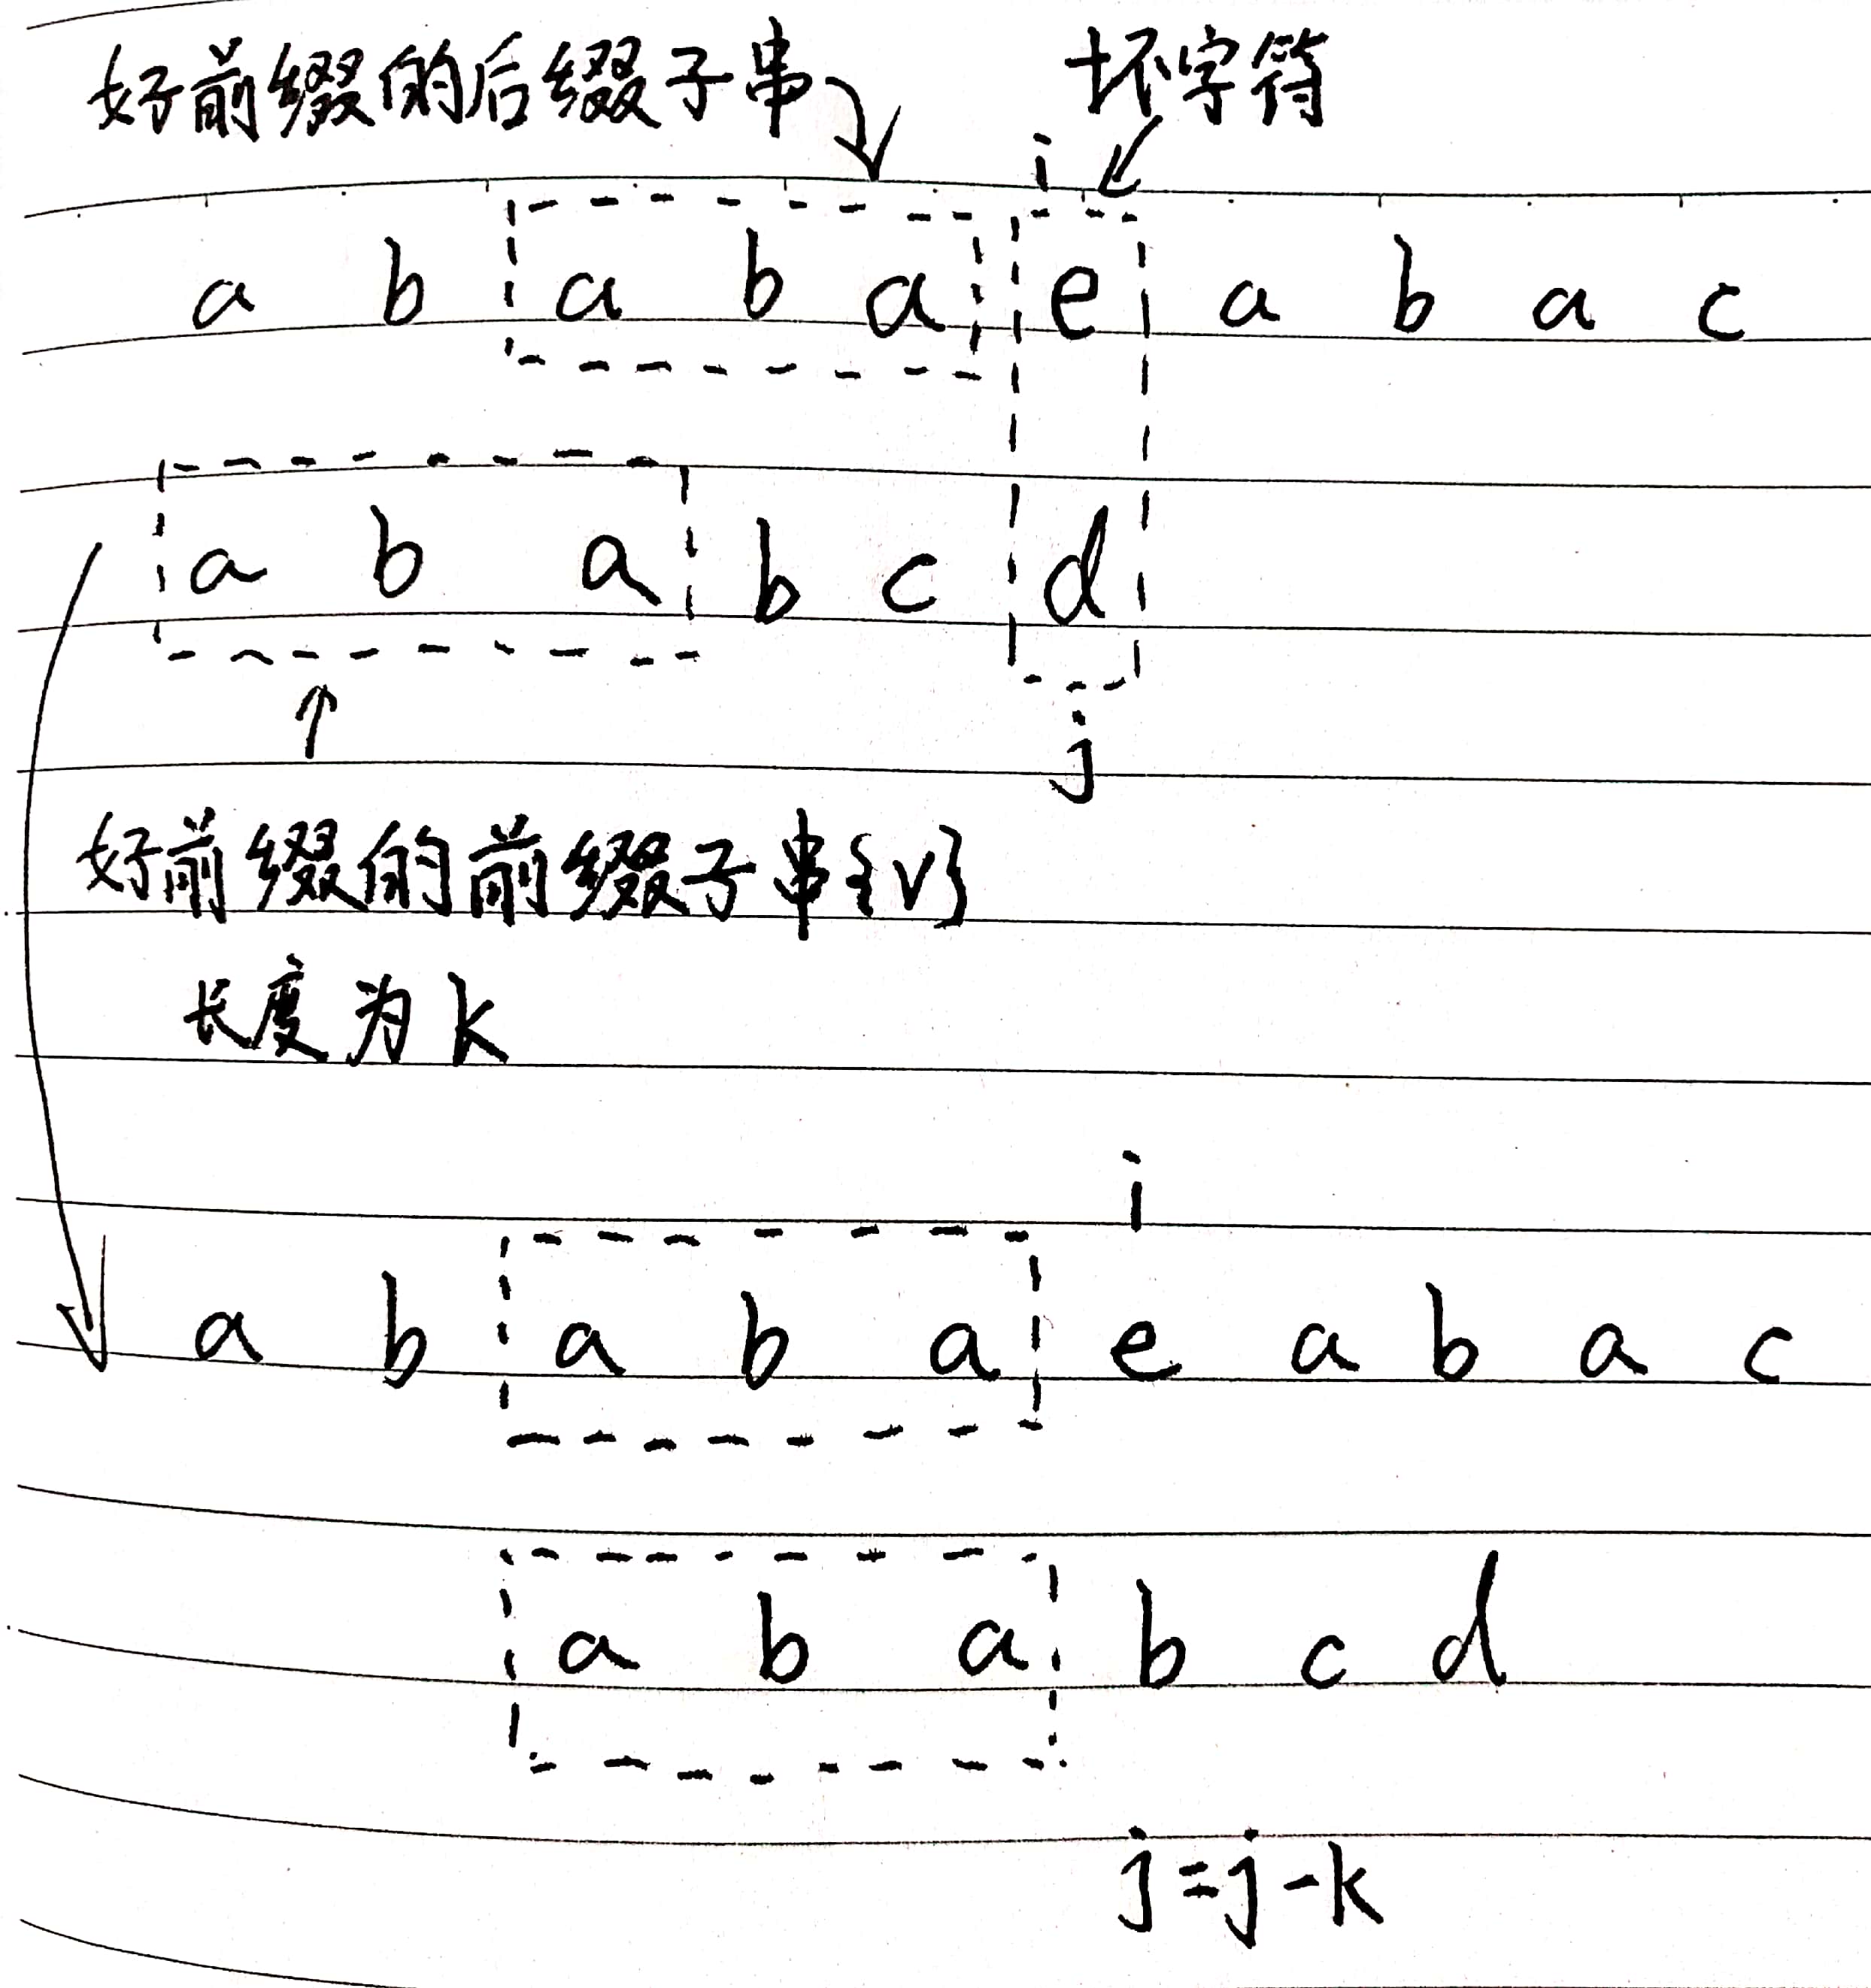 好前缀的后缀子串 坏字符
i
a b a b a e a b a c
a b a b c d
j
好前缀的前缀子串{v}
长度为k
i
a b a b a e a b a c
a b a b c d
j=j-k